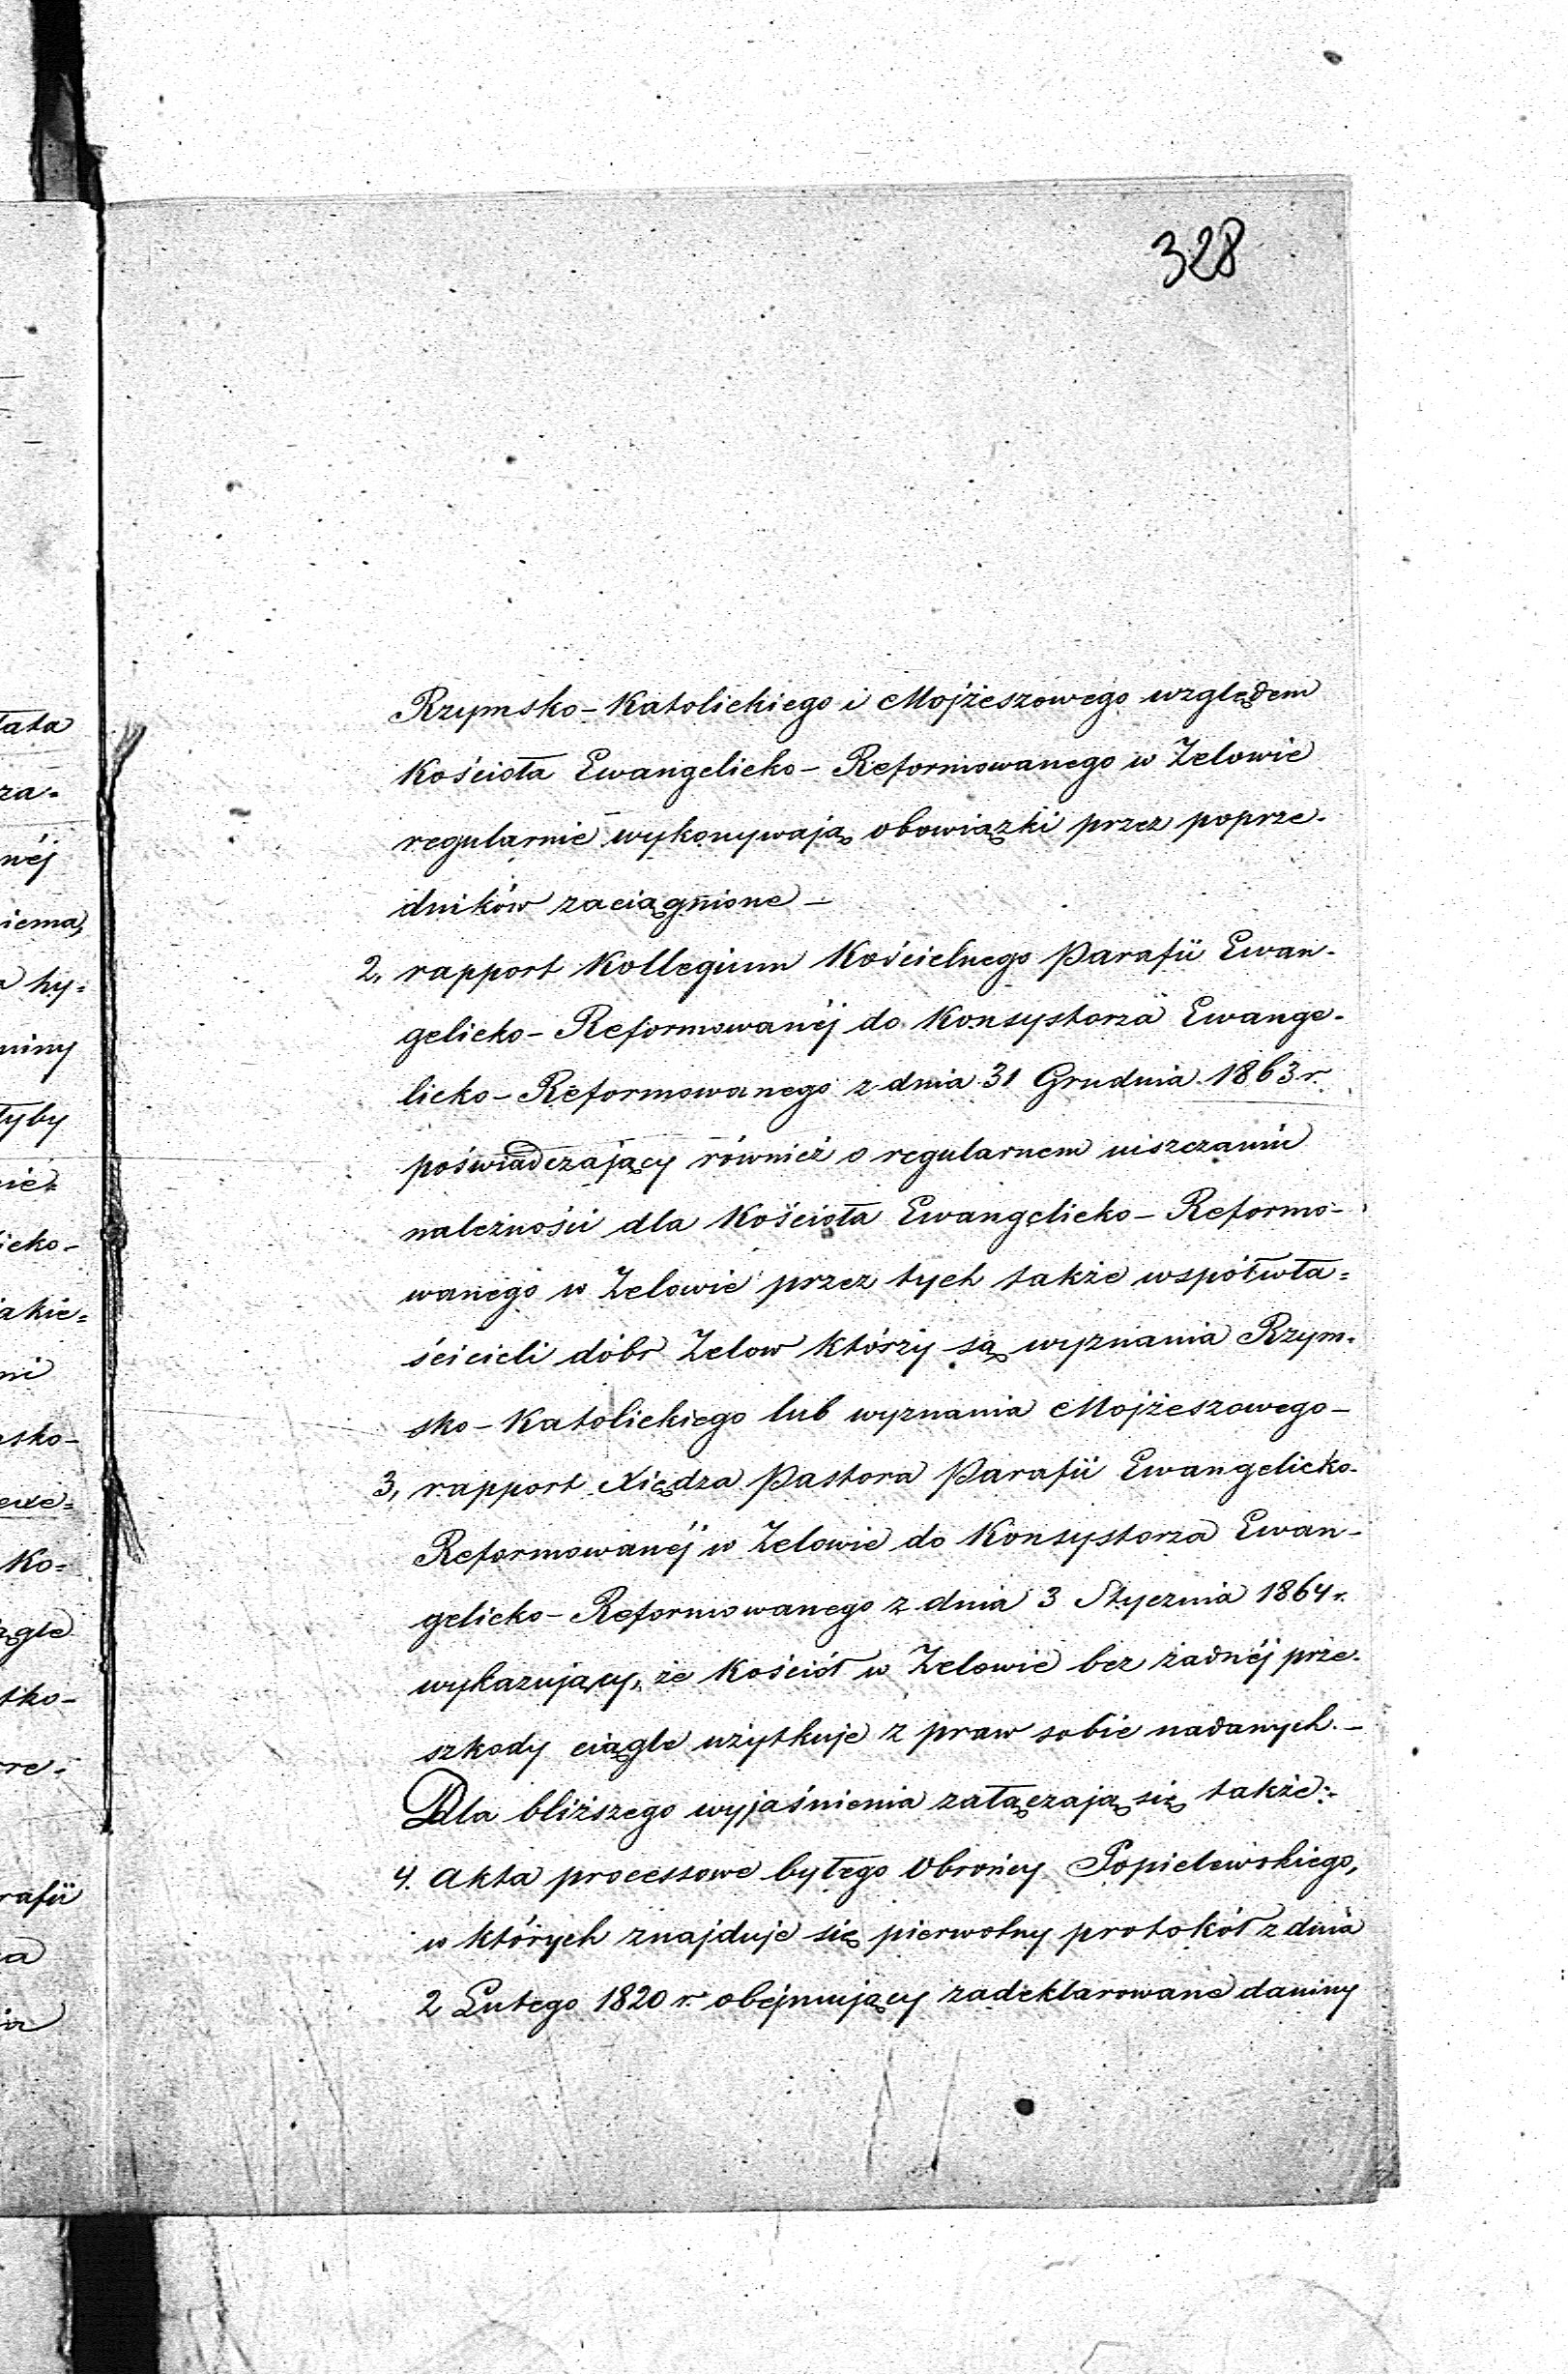 328
Rzymsko-Katolickiego i Mojżeszowego względem
Kościoła Ewangelicko-Reformowanego w Zelowie
regularnie wykonywają obowiązki przez poprze-
dników zaciągnione —
2, rapport Kollegium Kościelnego Parafii Ewan-
gelicko-Reformowanéj do Konsystorza Ewange-
licko-Reformowanego z dnia 31 Grudnia 1863 r.
poświadczający również o regularnem uiszczaniu
należności dla Kościoła Ewangelicko-Reformo-
wanego w Zelowie przez tych także współwła=
ścicieli dóbr Zelow którzy są wyznania Rzym-
sko-Katolickiego lub wyznania Mojżeszowego —
3, rapport Xiędza Pastora Parafii Ewangelicko-
Reformowanéj w Zelowie do Konsystorza Ewan-
gelicko-Reformowanego z dnia 3 Stycznia 1864 r.
wykazujący, że Kościół w Zelowie bez żadnéj prze-
szkody ciągle użytkuje z praw sobie nadanych. —
Dla bliższego wyjaśnienia załączają się także:
4. Akta processowe byłego Obrońcy Popielewskiego,
w których znajduje się pierwotny protokół z dnia
2 Lutego 1820 r. obejmujący zadeklarowane daniny
łata
za=
néj
niema,
hy=
miny
łyby
nie=
icko-
jakie=
ni
sko-
Ko=
ągle
tko-
rafii